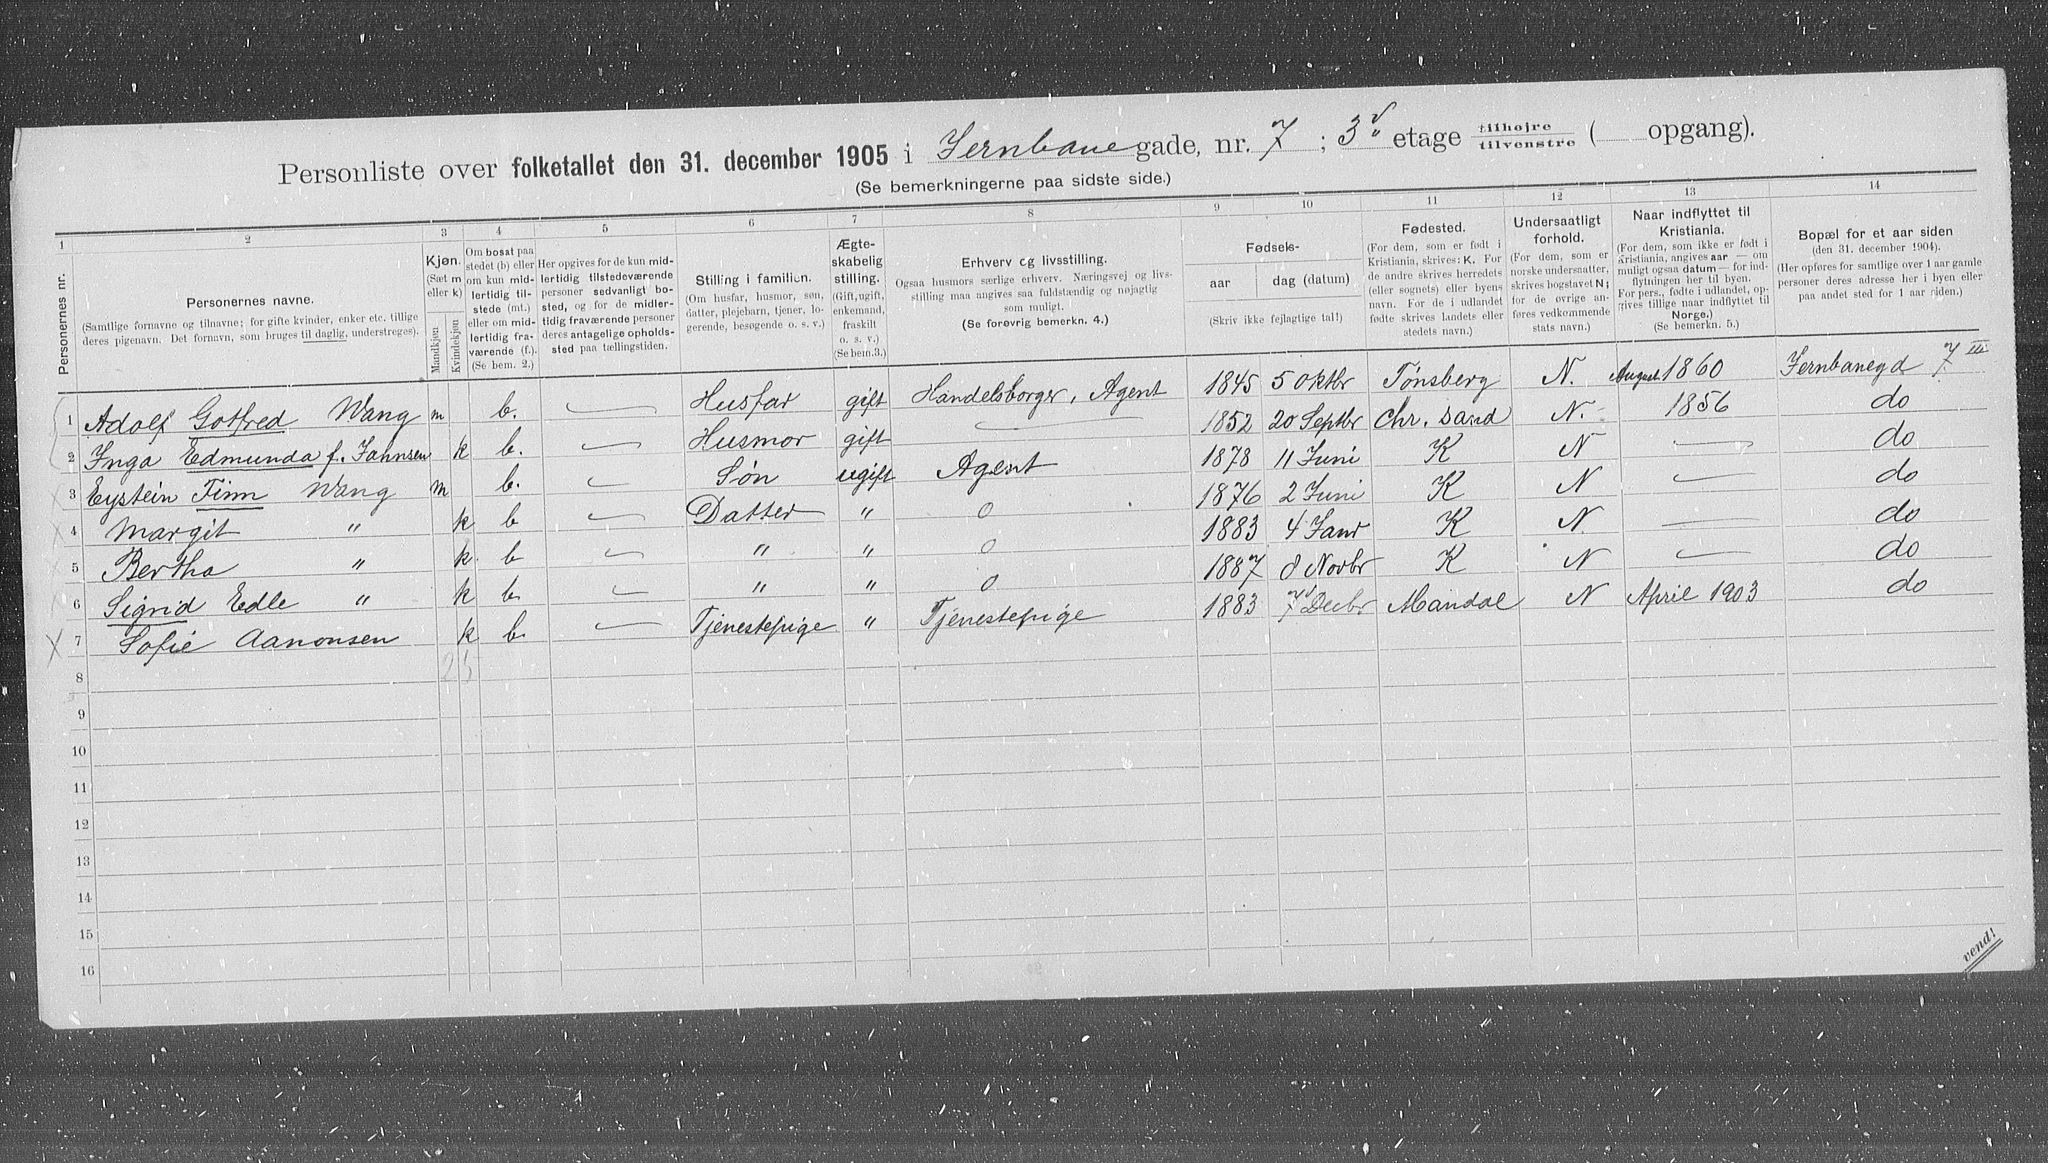 Personliste over folketallet den 31. december 1905 i Jernbanegade, nr. 7 ; 3 etage tilhøjre tilvenstre ( opgang).
(Se bemerkningerne paa sidste side.)
1 2 3 4 5 6 7 8 9 10 11 12 13 14
Personernes nr.
Personernes navne.
(Samtlige fornavne og tilnavne; for gifte kvinder, enker etc. tillige
deres pigenavn. Det fornavn, som bruges til daglig, understreges).
Kjøn.
(Sæt m
eller k)
Mandkjøn
Kvindekjøn
Om bosat paa
stedet (b) eller
om kun mid-
lertidig til-
stede (mt.)
eller om mid-
lertidig fra-
værende (f.).
(Se bem. 2.)
Her opgives for de kun mid-
lertidig tilstedeværende
personer sedvanligt bo-
sted, og for de midler-
tidig fraværende personer
deres antagelige opholds-
sted paa tællingstiden.
Stilling i familien.
(Om husfar, husmor, søn,
datter, plejebarn, tjener, lo-
gerende, besøgende o. s. v.)
Ægte-
skabelig
stilling.
(Gift, ugift,
enkemand,
fraskilt
o. s. v.)
(Se bem.3.)
Erhverv og livsstilling.
Ogsaa husmors særlige erhverv. Næringsvej og livs-
stilling maa angives saa fuldstændig og nøjagtig
som muligt.
(Se forøvrig bemerkn. 4.)
Fødsels-
aar dag (datum)
(Skriv ikke fejlagtige tal!)
Fødested.
(For dem, som er født i
Kristiania, skrives: K. For
de andre skrives herredets
(eller sognets) eller byens
navn. For de i udlandet
fødte skrives landets eller
stedets navn.)
Undersaatligt
forhold.
(For dem, som er
norske undersaatter,
skrives bogstavet N;
for de øvrige an-
føres vedkommende
stats navn.)
Naar indflyttet til
Kristiania.
(For dem, som ikke er født i
Kristiania, angives aar — om
muligt ogsaa datum — for ind-
flytningen her til byen.
For pers., fødte i udlandet, op-
gives tillige naar indflyttet til
Norge.)
(Se bemerkn. 5.)
Bopæl for et aar siden
(den 31. december 1904).
(Her opføres for samtlige over 1 aar gamle
personer deres adresse her i byen eller
paa andet sted for 1 aar siden.)
1 Adolf Gotfred Wang m b. Husfar gift Handelsborger, Agent 1845 5 Oktbr Tønsberg N. August 1860 Jernbanegd 7 III
2 Inga Edmunda f. Jahnsen k b. Husmor gift 1852 20 Septbr Chr. sand N. 1856 do
3 Eystein Finn Wang m b. Søn ugift Agent 1878 11 Juni K N do
4 Margit " k b Datter " 0 1876 2 Juni K N do
5 Bertha " k b " " 0 1883 4 Janr K N do
6 Sigrid Edle " k b. " " 0 1887 8 Novbr K N do
7 Sofie Aanonsen k b. Tjenestepige " Tjenestepige 1883 7 Decbr Mandal N April 1903 do
8 2 5
9
10
11
12
13
14
15
16
vend!